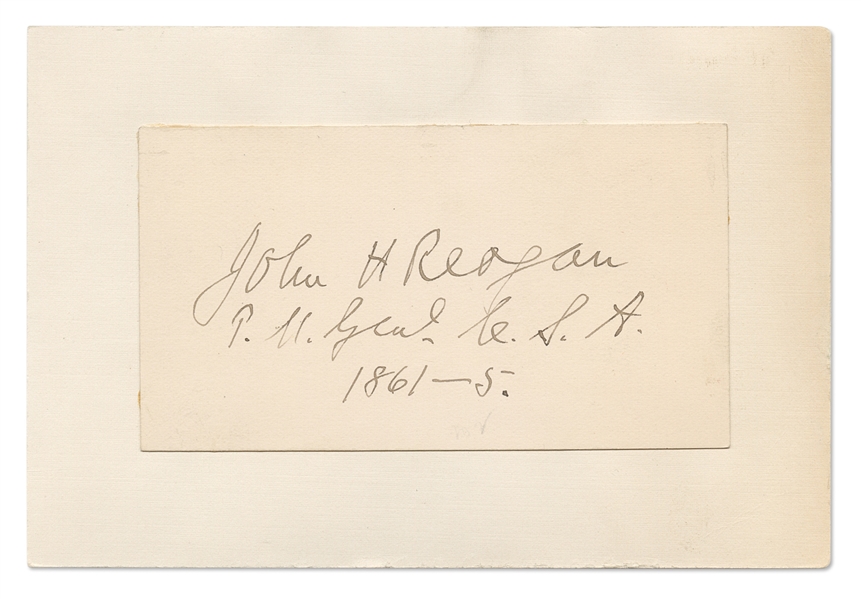 John H Reagan
P. M. Genl. C. S. A.
1861—5.